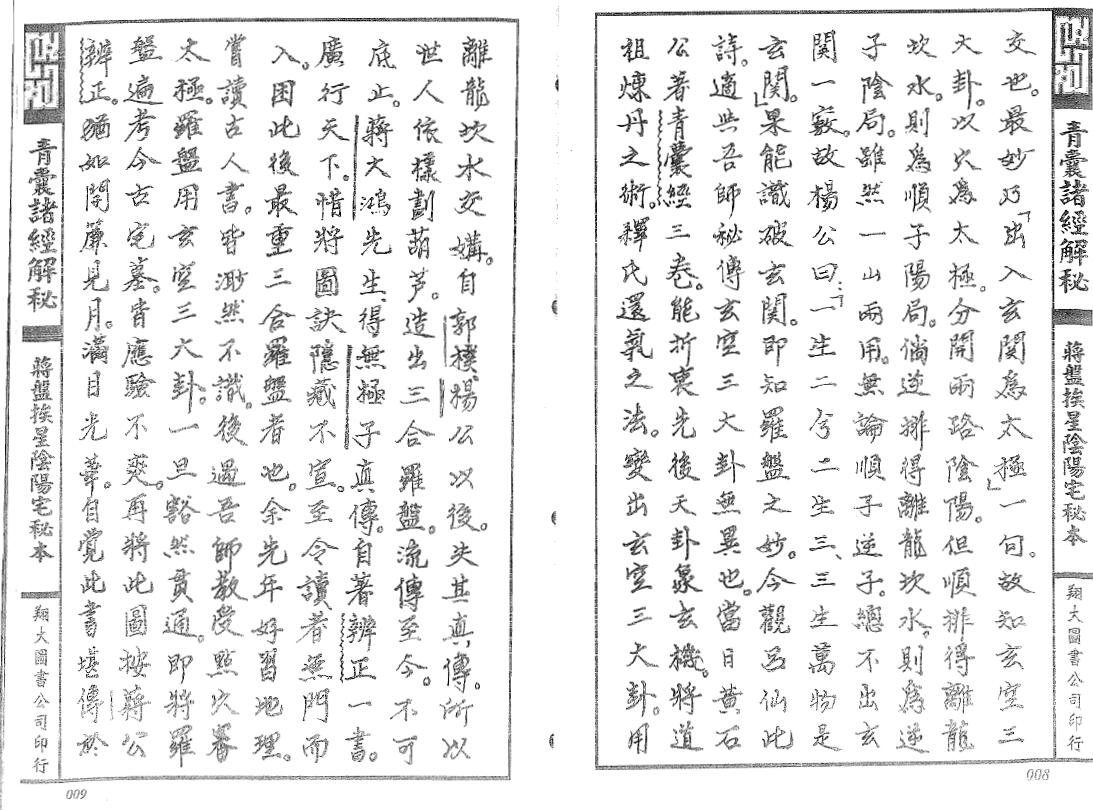 青囊諸經解秘
蔣盤挨星陰陽宅秘本
翔大圖書公司印行
交也。最妙乃「出入玄関為太極」一句。故知玄空三
大卦。以穴為太極。分開兩路陰陽。但順排得離龍
坎水。則為順子陽局。倘逆排得離龍坎水。則為逆
子陰局。雖然一山兩用。無論順子逆子。總不出玄
関一竅。故楊公曰：「一生二兮二生三、三生萬物是
玄関。」果能識破玄関。即知羅盤之妙。今觀呂仙此
詩。適與吾師秘傳玄空三大卦無異也。當日黃石
公著青囊經三卷。能折衷先後天卦象玄機。將道
祖煉丹之術。釋氏還氣之法。變出玄空三大卦。用
008
離龍坎水交媾。自郭樸楊公以後。失其真傳。所以
世人依樣劃葫芦。造出三合羅盤。流傳至今。不可
底止。蔣大鴻先生、得無極子真傳。自著辨正一書。
廣行天下。惜將圖訣隱藏不宣。至令讀者無門而
入。因此後最重三合羅盤者也。余先年好習地理。
嘗讀古人書。皆渺然不識。後遇吾師教受點穴審
太極。羅盤用玄空三大卦。一旦豁然貫通。即將羅
盤遍考今古宅墓。皆應驗不爽。再將此圖按蔣公
辨正。猶如開簾見月。滿目光華。自覺此書堪傳於
青囊諸經解秘
蔣盤挨星陰陽宅秘本
翔大圖書公司印行
009